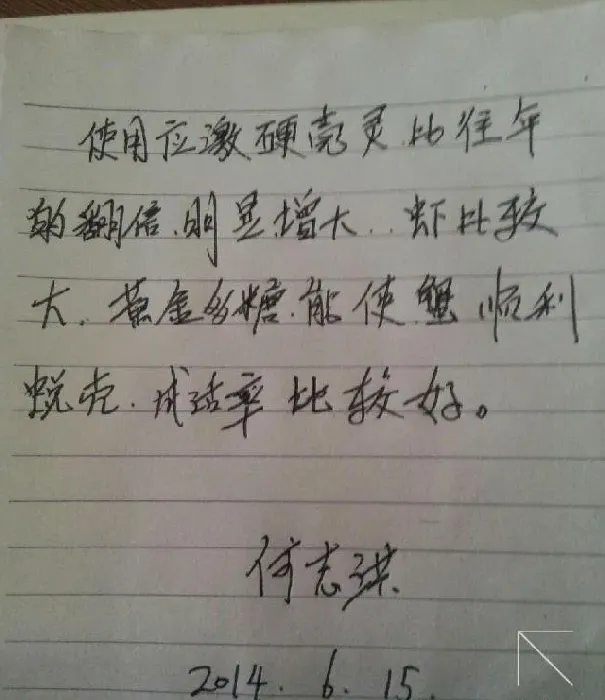 使用应激硬壳灵.比往年
的翻倍.明显.增大..虾比较
大.黄金多糖.能使.蟹顺利
蜕壳.成活率比较好。
何志
2014.6.15.